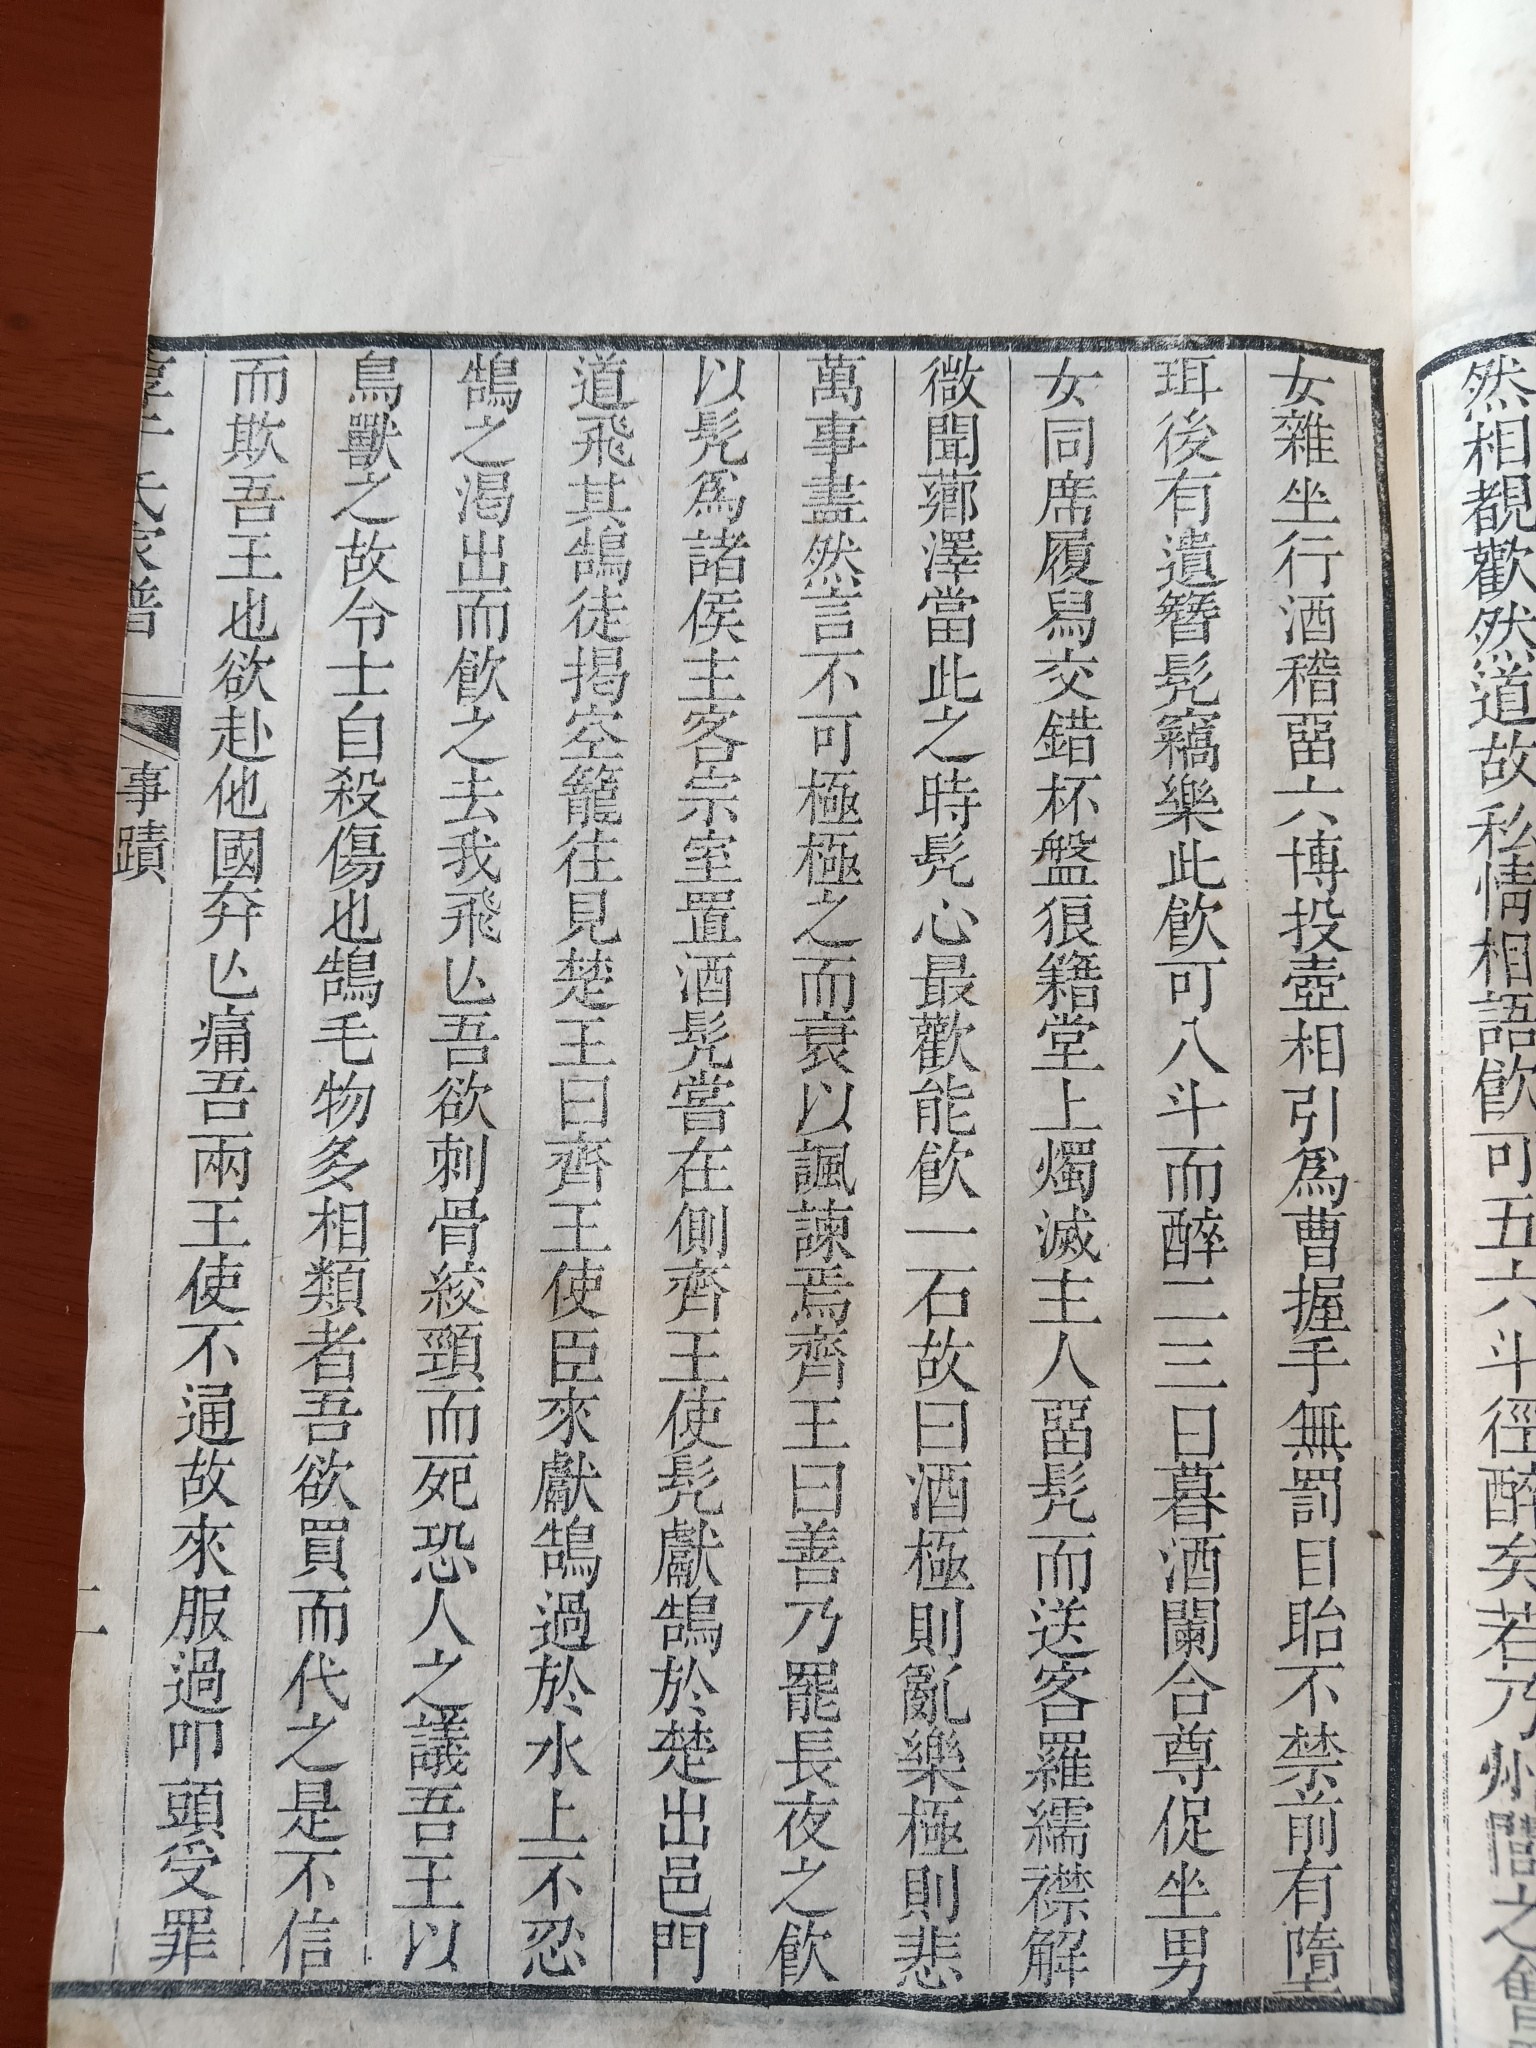 然相覩歡然道故私情相語飮可五六斗徑醉矣若乃州閭之會
女雜坐行酒稽畱六博投壺相引爲曹握手無罰目眙不禁前有墮
珥後有遺簪髡竊樂此飮可八斗而醉二三日暮酒闌合尊促坐男
女同席履舄交錯杯盤狼籍堂上燭滅主人畱髡而送客羅繻襟解
微聞薌澤當此之時髡心最歡能飮一石故曰酒極則亂樂極則悲
萬事盡然言不可極極之而衰以諷諫焉齊王曰善乃罷長夜之飮
以髡爲諸侯主客宗室置酒髡嘗在側齊王使髡獻鵠於楚出邑門
道飛其鵠徒揭空籠往見楚王曰齊王使臣來獻鵠過於水上不忍
鵠之渴出而飮之去我飛亾吾欲刺骨絞頸而死恐人之議吾王以
鳥獸之故令士自殺傷也鵠毛物多相類者吾欲買而代之是不信
而欺吾王也欲赴他國奔亾痛吾兩王使不通故來服過叩頭受罪
氏家譜 事蹟 二